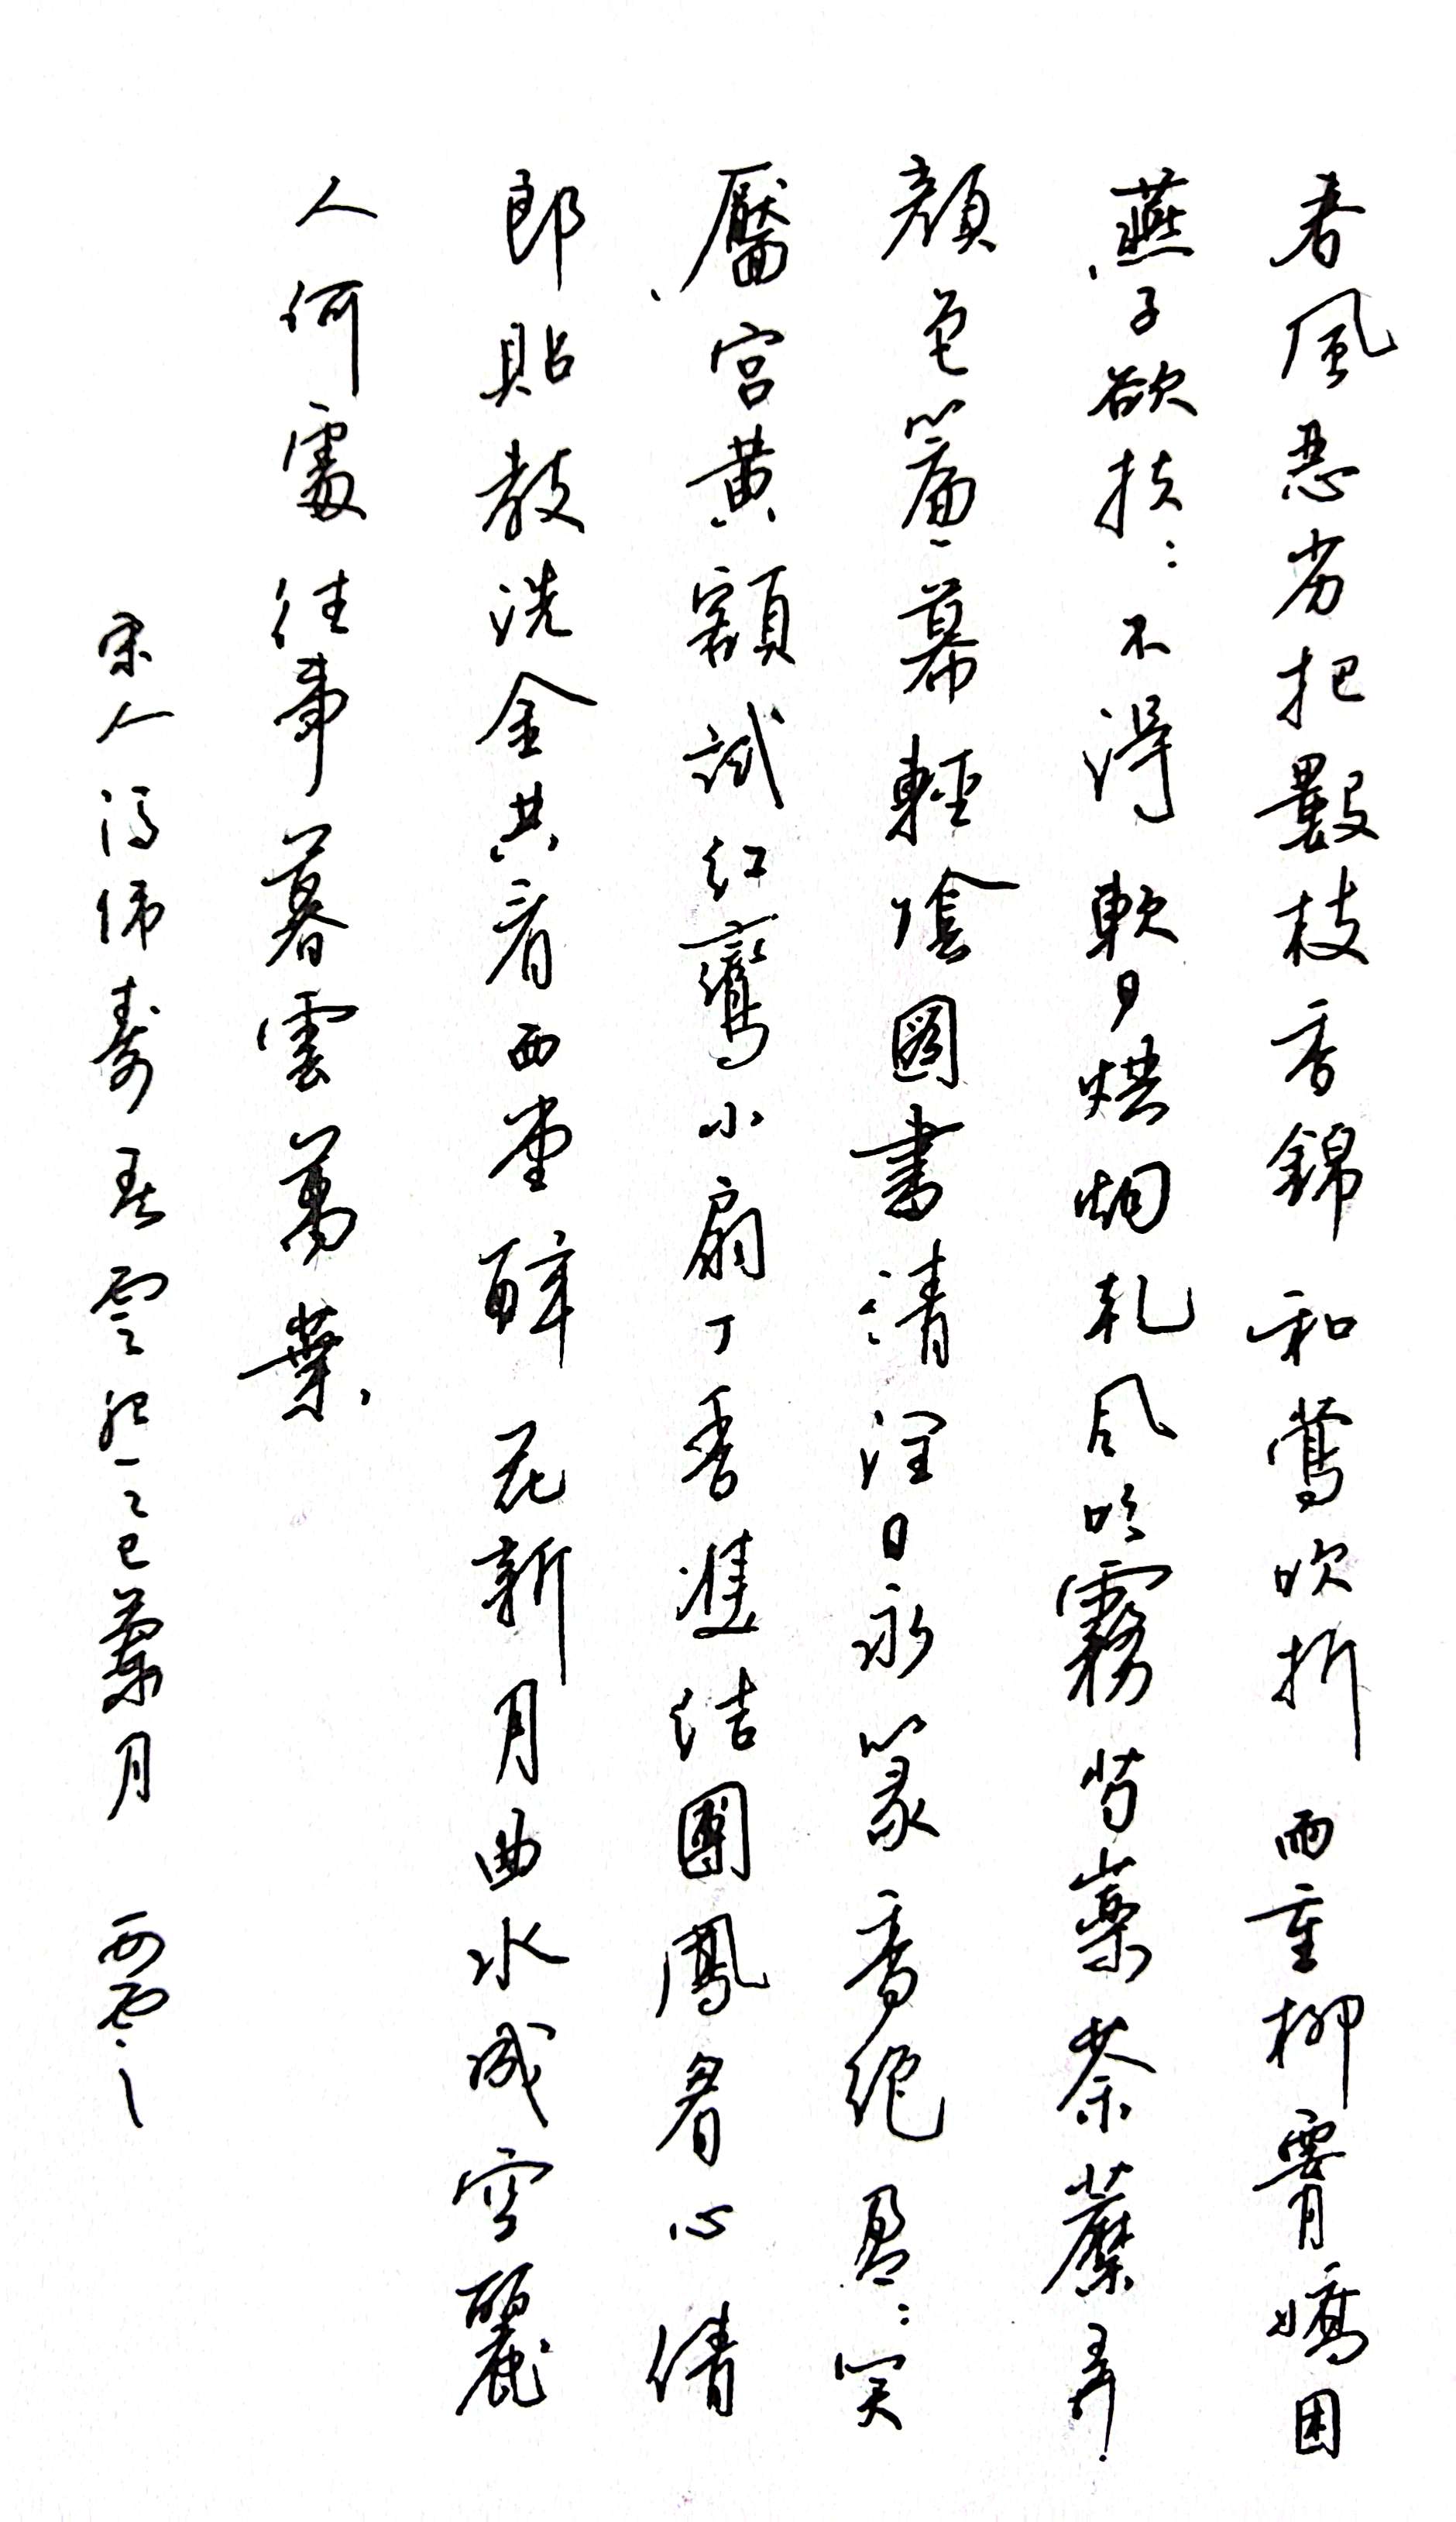 春風惡劣把數枝香錦和鶯吹折雨重柳腰嬌困
燕子欲扶〻不得軟日烘烟乾風吹霧芍藥荼蘼弄
顏色簾幕輕陰圖書清潤日永篆香絕盈〻笑
靨宮黃額試紅鸞小扇丁香雙結團鳳眉心倩
郎貼教洗金共看西堂醉花新月曲水成空麗
人何處往事暮雲萬葉
宋人馮偉壽春雲怨乙巳蘭月